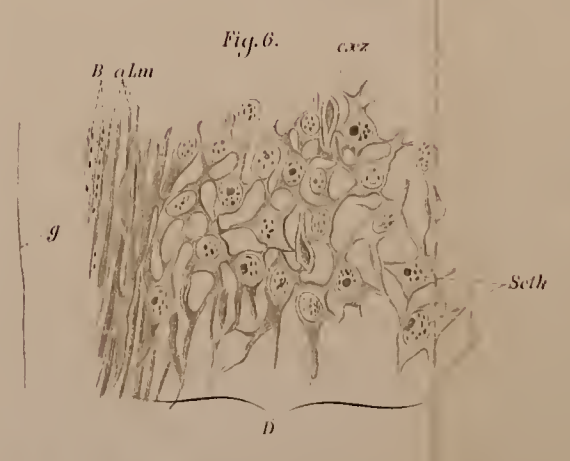 Fig. 6.
cxz
B alm
g
Scth
D